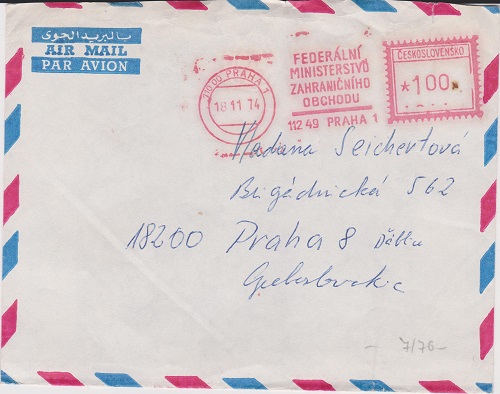 بالبريد الجوى
AIR MAIL
PAR AVION
21000 PRAHA 1
18 11 74
FEDERÁLNÍ
MINISTERSTVO
ZAHRANIČNÍHO
OBCHODU
112 49 PRAHA 1
ČESKOSLOVENSKO
*1.00
Seichertová
Brigádnická 562
18200 Praha 8
7/70-